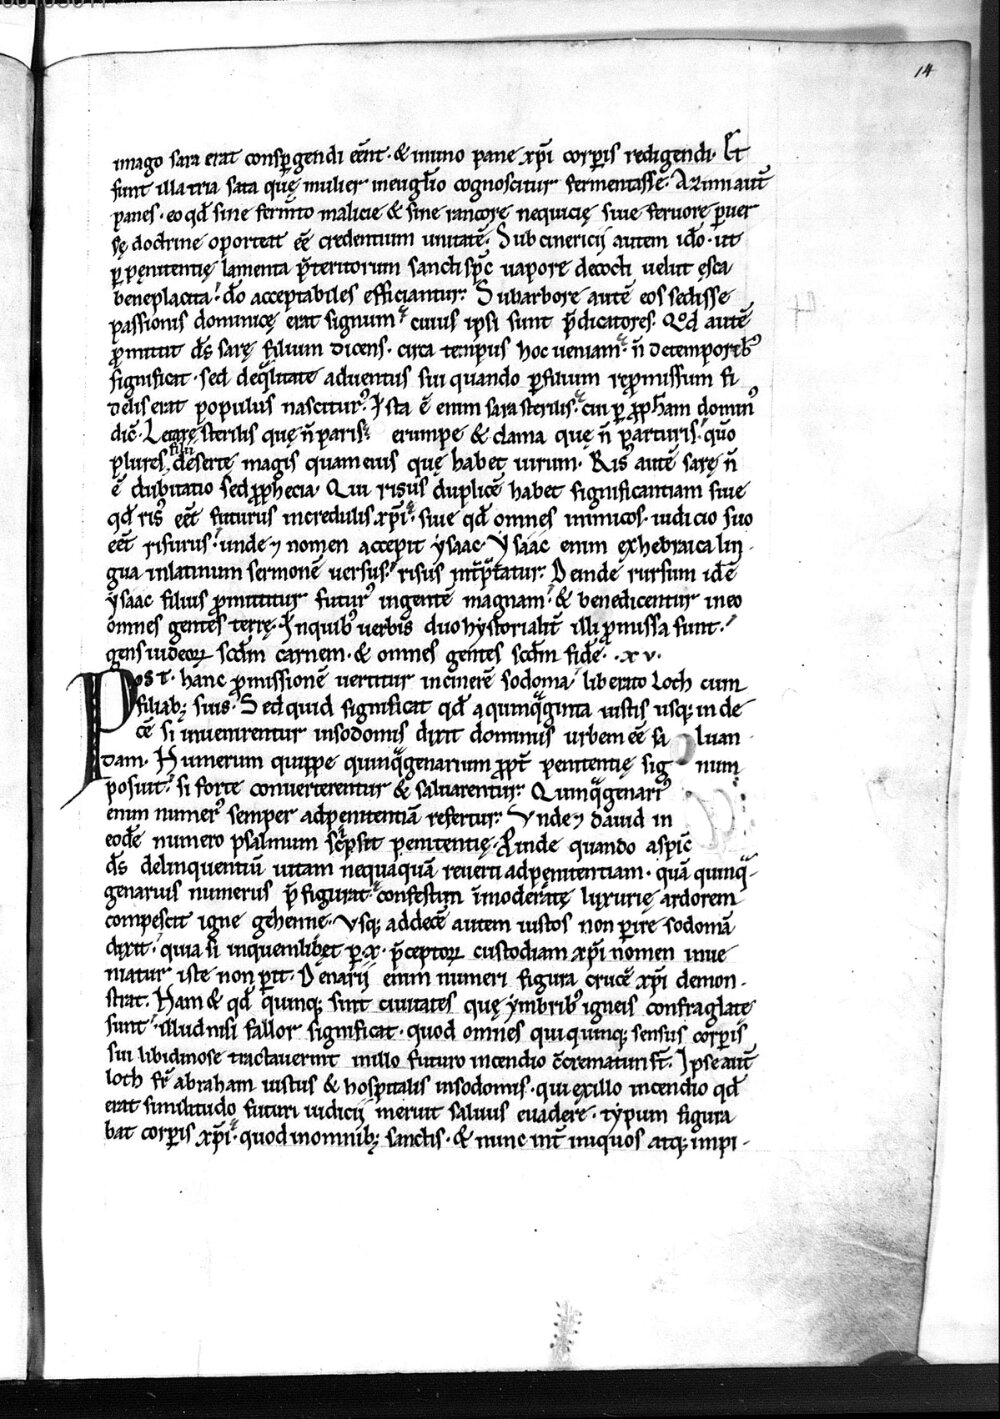 14
imago sara erat conspgendi eēnt · & inuno pane xp̄i corꝑis redigendi · Et
sunt illa tria sata quę mulier ineuḡlio cognoscitur fermentasse · Azimi aut̄
panes · eo qd̄ sine ferm̄to malicie & sine rancore nequicię siue feruore ꝑuer
sę doctrine oporteat eē credentium unitatē · Subcinericij autem idō · ut
ꝑ pęnitentię lamenta p̄teritorum sancti sp̄c uapore decocti uelut ęsca
beneplacita · dō acceptabiles efficiantur · Subarbore autē eos sedisse
passionis dominicę erat signum · cuius ipsi sunt p̄dicatores · Qod autē
ꝓmittit d̄s sarę filium dicens · circa tempus hoc ueniam · n̄ de temporibꝰ
significat · sed deq̄litate aduentus sui quando ꝑ filium repromissum fi
delis erat populus nasciturꝰ · Ista ē enim sara sterilis · cui ꝑ ꝓph̄am dominꝰ
dic̄ · Letare sterilis quę n̄ paris · erumpe & clama quę n̄ parturis · quō
plures filii desertę magis quam eius quę habet uirum · Risꝰ autē sarę n̄
ē dubitatio sed ꝓphecia · Qui risus duplicē habet significantiam siue
qd̄ risꝰ eēt futurus incredulis xp̄i · siue qd̄ omnes inimicos · iudicio suo
eēt risurus · unde ⁊ nomen accepit ysaac · Ysaac enim exhebraica lin ·
gua inlatinum sermonē uersus · risus int̄p̄tatur · Deinde rursum idē
ysaac filius ꝓmittitur futurꝰ ingentē magnam · & benedicentur ineo
omnes gentes terrę · Inquibꝰ uerbis duo hystorialit̄ illi ꝓmissa sunt ·
gens iudeoꝝ scd̄m carnem · & omnes gentes scd̄m fidē · · xv ·
Post · hanc ꝓmissionē uertitur incinerē sodoma · liberato Loch cum
filiabꝫ suis · Sed quid significat qd̄ aquinq̄ginta iustis usqꝫ in de
cē si inuenirentur insodomis dixit dominus urbem eē sa luan
dam · Numerum quippe quinq̄genarium ꝓpt̄ penitentię sig num
posuit · si forte conuerterentur & saluarentur · Quinq̄genariꝰ
enim numerꝰ semper adpenitentiā refertur · Unde ⁊ dauid in
eodē numero psalmum sc̄psit penitentię · Proinde quando aspic̄
d̄s delinquentiū uitam nequaquā reuerti adpęnitentiam · quā quinq̄ ·
genarius numerus p̄figurat · confestim īmoderatę luxurię ardorem
compescit igne gehenne · Usqꝫ addecē autem iustos non ꝑire sodomā
dixit · quia si inquemlibet ꝑ · x · p̄ceptoꝝ custodiam xp̄i nomen inue
niatur iste non ꝑit · Denarij enim numeri figura crucē xp̄i demon ·
strat · Nam & qd̄ quinqꝫ sint ciuitates quę ymbribꝰ igneis conflagratę
sunt · illud nisi fallor significat · quod omnes qui quinqꝫ sensus corꝑis
sui libidinose tractauerint inillo futuro incendio c̄crematuri st̄ · Ipse aut̄
loth fr̄ abraham iustus & hospitalis insodomis · qui exillo incendio qd̄
erat similitudo futuri iudicij meruit saluus euadere · typum figura
bat corꝑis xp̄i · quod inomnibꝫ sanctis · & nunc int̄ iniquos atqꝫ impi ·